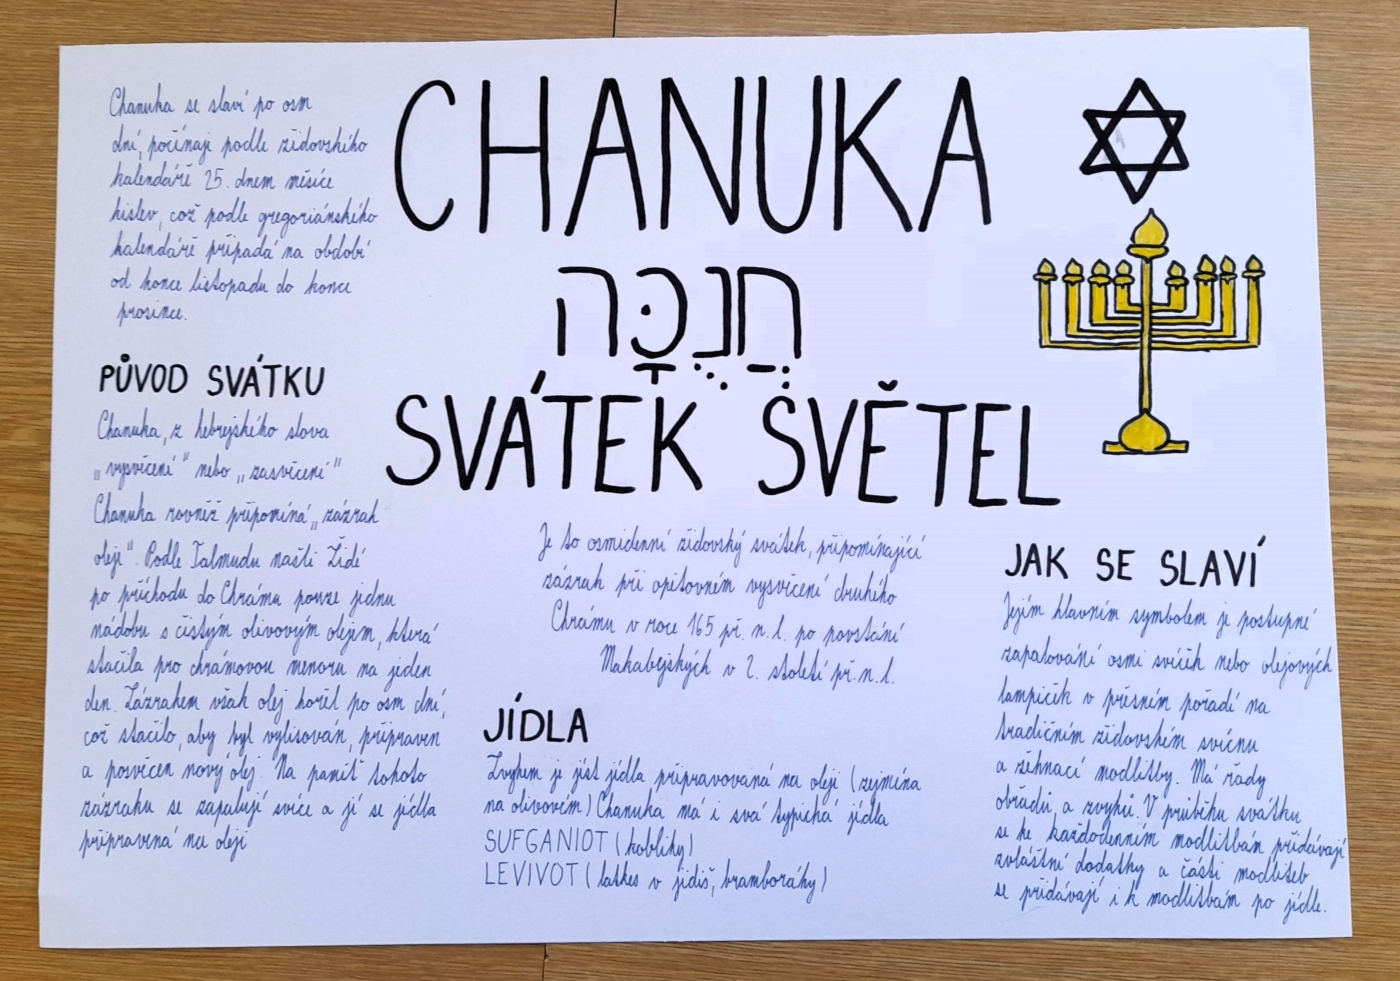 Chanuka se slaví po osm
dní, počínaje podle židovského
kalendáře 25. dnem měsíce
kislev, což podle gregoriánského
kalendáře připadá na období
od konce listopadu do konce
prosince.
CHANUKA
חֲנֻכָּה
SVÁTEK SVĚTEL
PŮVOD SVÁTKU
Chanuka, z hebrejského slova
„vysvěcení" nebo „zasvěcení"
Chanuka rovněž připomíná „zázrak
oleje". Podle Talmudu našli Židé
po příchodu do Chrámu pouze jednu
nádobu s čistým olivovým olejem, která
stačila pro chrámovou menoru na jeden
den. Zázrakem však olej hořel po osm dní,
což stačilo, aby byl vylisován, připraven
a posvěcen nový olej. Na paměť tohoto
zázraku se zapalují svíce a jí se jídla
připravená na oleji
Je to osmidenní židovský svátek, připomínající
zázrak při opětovném vysvěcení druhého
Chrámu v roce 165 př. n. l. po povstání
Makabejských v 2. století př. n. l.
JÍDLA
Zvykem je jíst jídla připravovaná na oleji (zejména
na olivovém) Chanuka má i svá typická jídla
SUFGANIOT (koblihy)
LEVIVOT (latkes v jidiš, bramboráky)
JAK SE SLAVÍ
Jejím hlavním symbolem je postupné
zapalování osmi svíček nebo olejových
lampiček v přesném pořadí na
tradičním židovském svícnu
a žehnací modlitby. Má řady
obřadů a zvyků. V průběhu svátku
se ke každodenním modlitbám přidávají
zvláštní dodatky a části modliteb
se přidávají i k modlitbám po jídle.